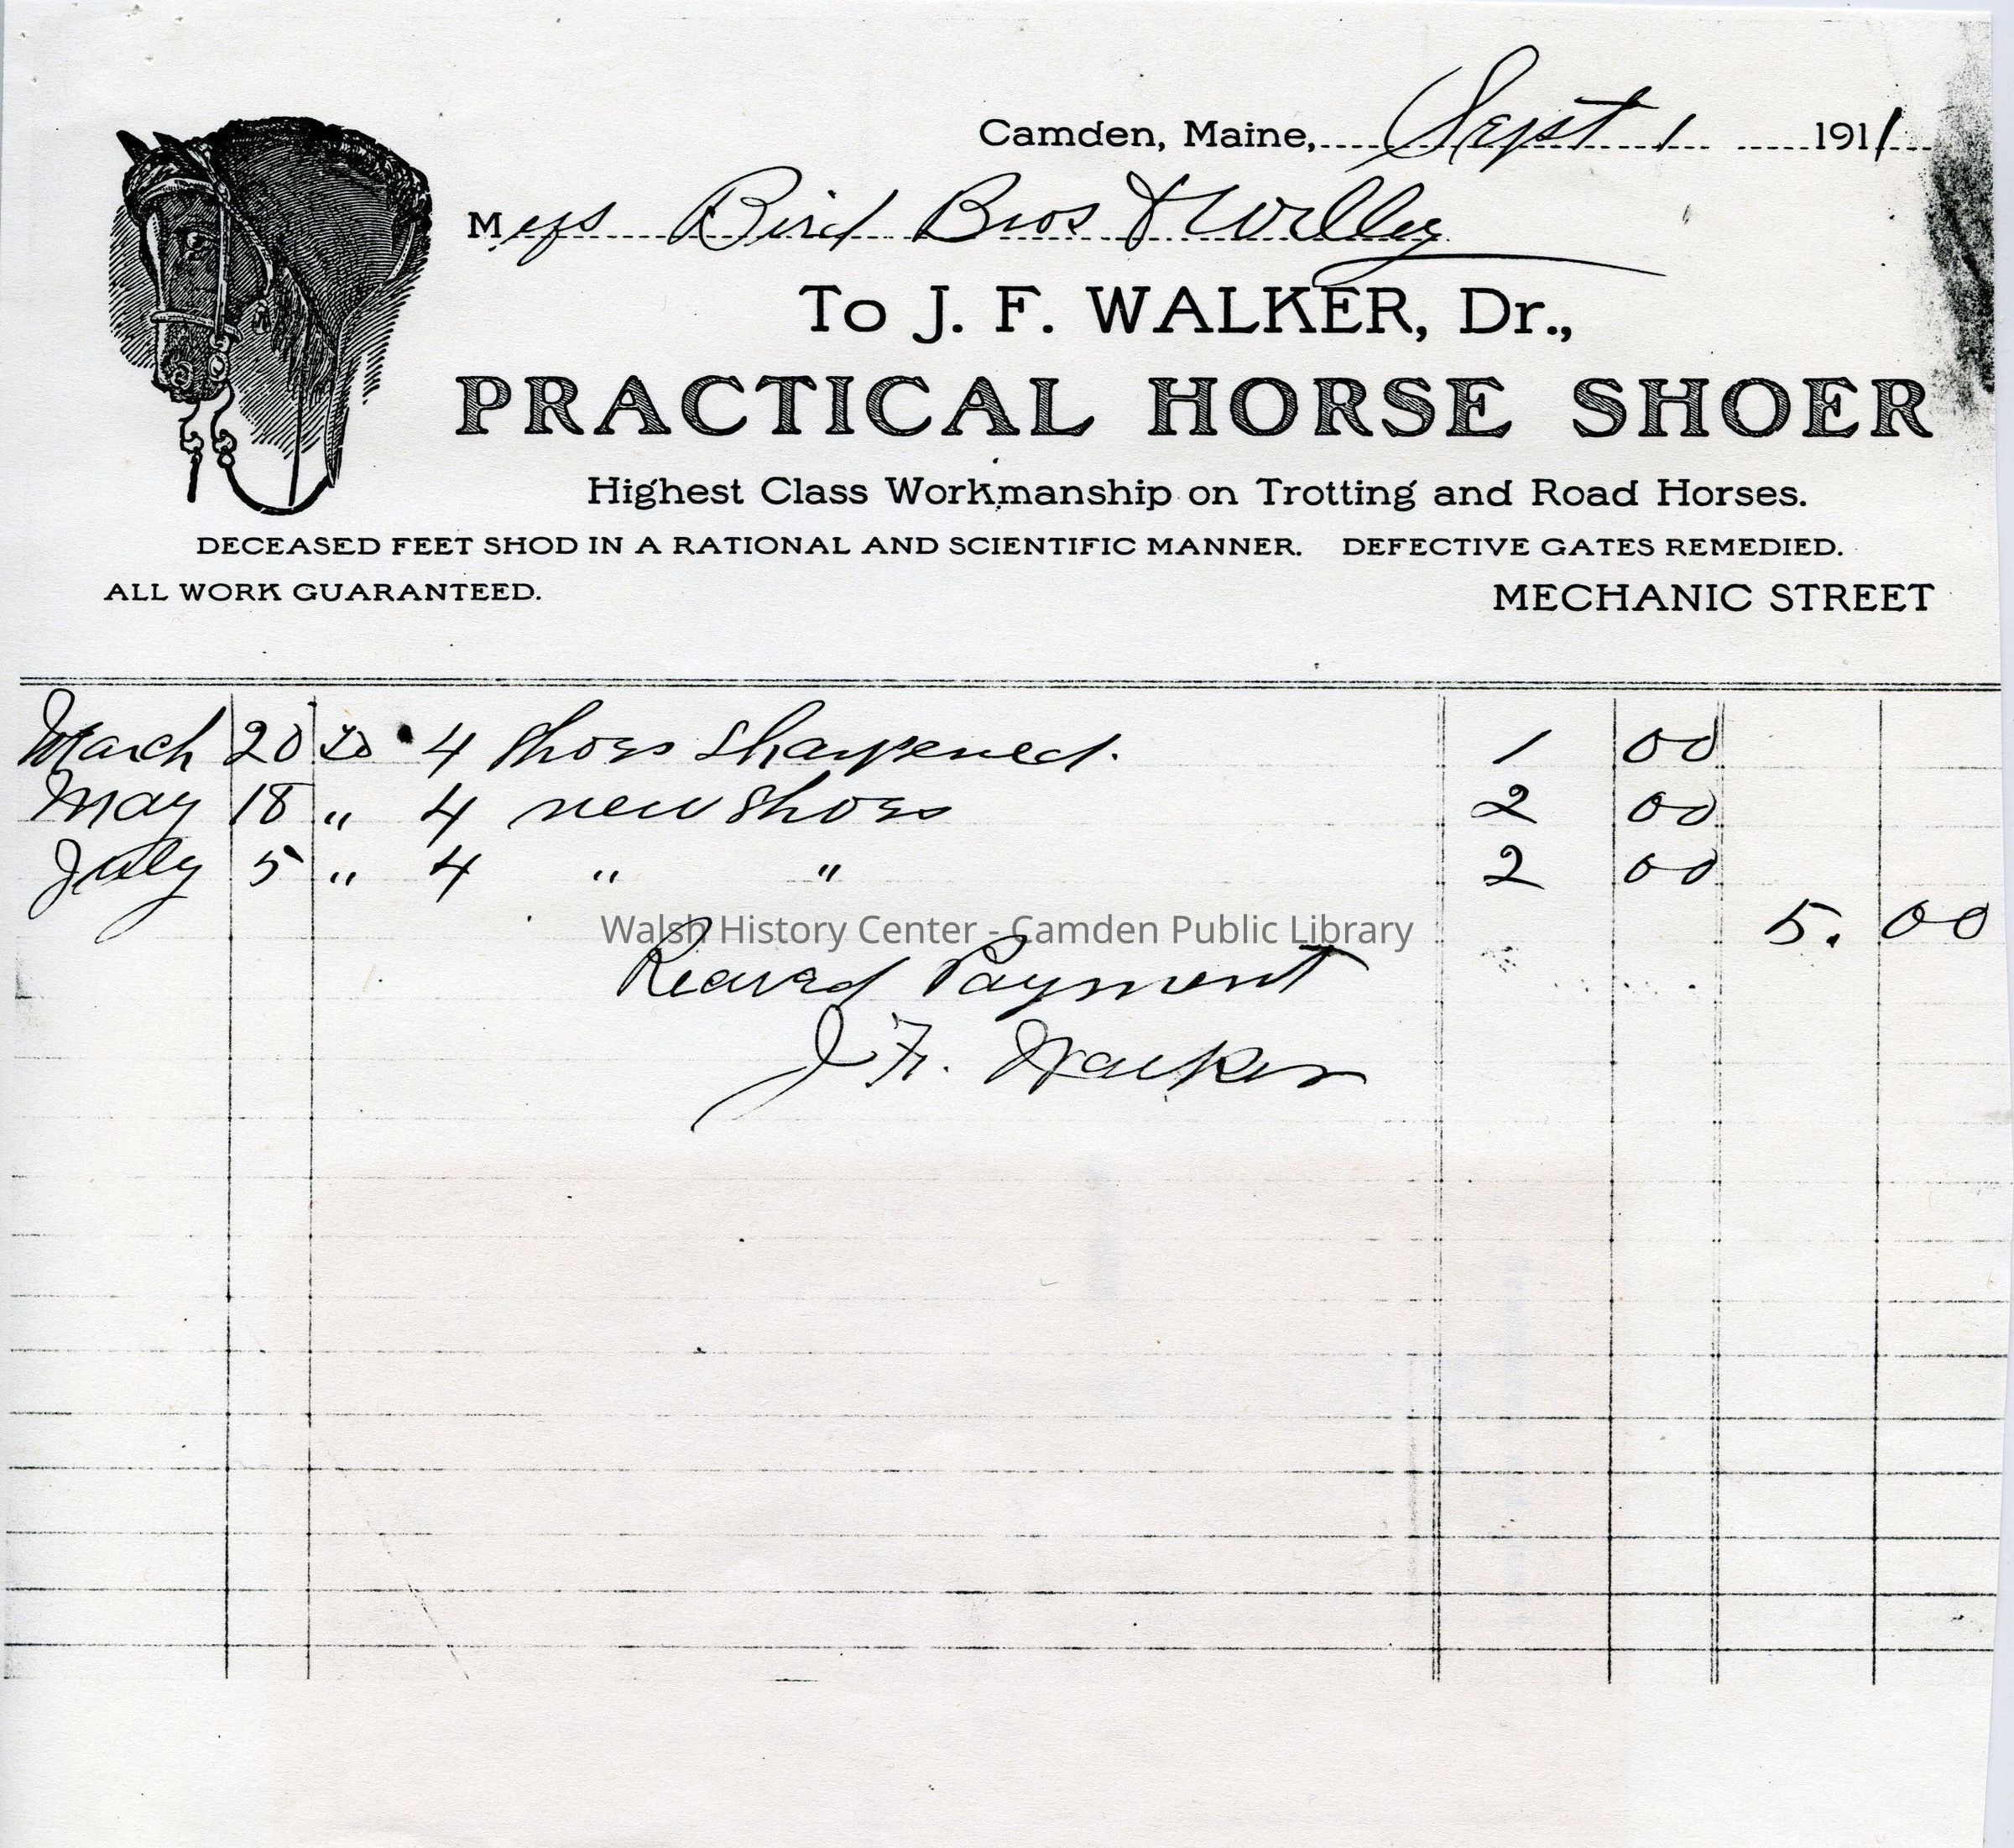 Camden, Maine, Sept 1 1911
Messrs Bird Bros & Willey
To J. F. WALKER, Dr.,
PRACTICAL HORSE SHOER
Highest Class Workmanship on Trotting and Road Horses.
DECEASED FEET SHOD IN A RATIONAL AND SCIENTIFIC MANNER. DEFECTIVE GATES REMEDIED.
ALL WORK GUARANTEED. MECHANIC STREET
March 20 To 4 Shoes Sharpened. 1 00
May 18 " 4 new Shoes 2 00
July 5 " 4 " " 2 00
5.00
Walsh History Center - Camden Public Library
Received Payment
J. F. Walker